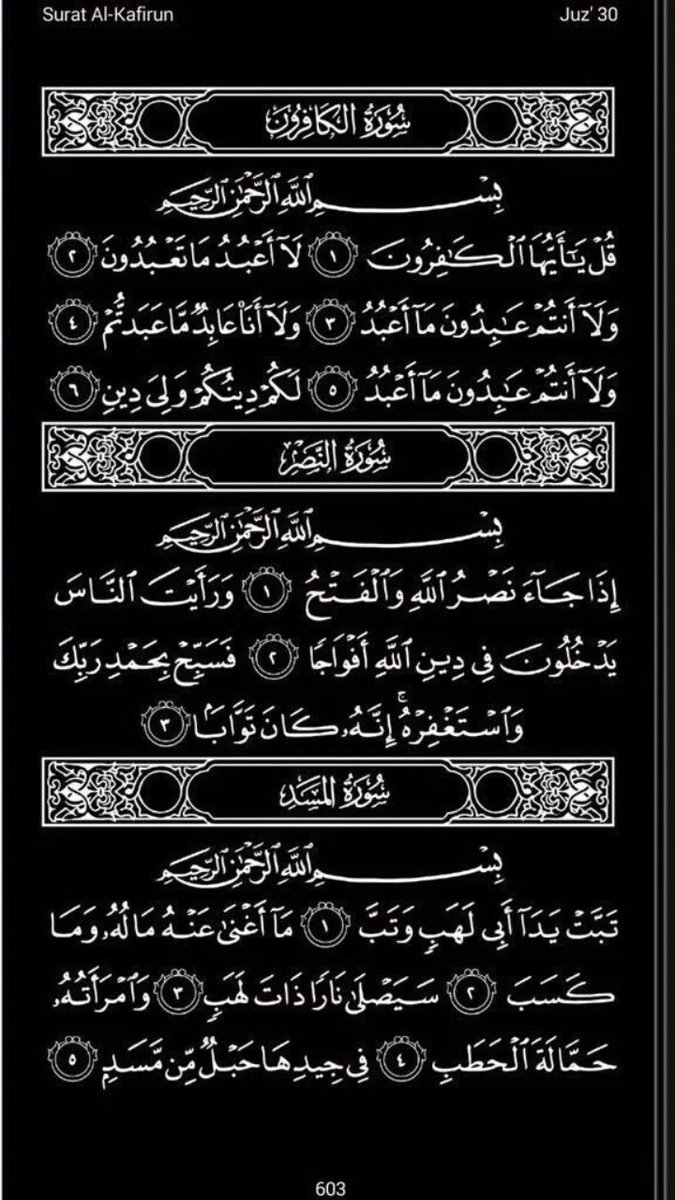 Surat Al-Kafirun Juz' 30
سُورَةُ الكَافِرُونَ
بِسْمِ اللَّهِ الرَّحْمَٰنِ الرَّحِيمِ
قُلْ يَٰٓأَيُّهَا ٱلْكَٰفِرُونَ ١ لَآ أَعْبُدُ مَا تَعْبُدُونَ ٢
وَلَآ أَنتُمْ عَٰبِدُونَ مَآ أَعْبُدُ ٣ وَلَآ أَنَا۠ عَابِدٌ مَّا عَبَدتُّمْ ٤
وَلَآ أَنتُمْ عَٰبِدُونَ مَآ أَعْبُدُ ٥ لَكُمْ دِينُكُمْ وَلِىَ دِينِ ٦
سُورَةُ النَّصْرِ
بِسْمِ اللَّهِ الرَّحْمَٰنِ الرَّحِيمِ
إِذَا جَآءَ نَصْرُ ٱللَّهِ وَٱلْفَتْحُ ١ وَرَأَيْتَ ٱلنَّاسَ
يَدْخُلُونَ فِى دِينِ ٱللَّهِ أَفْوَاجًا ٢ فَسَبِّحْ بِحَمْدِ رَبِّكَ
وَٱسْتَغْفِرْهُ ۚ إِنَّهُۥ كَانَ تَوَّابًۢا ٣
سُورَةُ المَسَدِ
بِسْمِ اللَّهِ الرَّحْمَٰنِ الرَّحِيمِ
تَبَّتْ يَدَآ أَبِى لَهَبٍ وَتَبَّ ١ مَآ أَغْنَىٰ عَنْهُ مَالُهُۥ وَمَا
كَسَبَ ٢ سَيَصْلَىٰ نَارًا ذَاتَ لَهَبٍ ٣ وَٱمْرَأَتُهُۥ
حَمَّالَةَ ٱلْحَطَبِ ٤ فِى جِيدِهَا حَبْلٌ مِّن مَّسَدٍۭ ٥
603